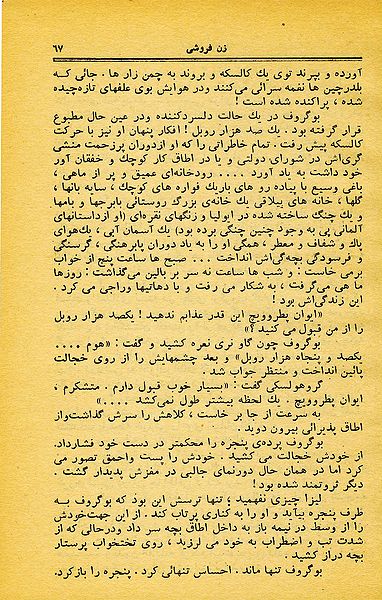 زن فروشی ۶۷
آورده و بپرند توی یك كالسكه و بروند به چمن زار ها . جائی كه
بلدرچین ها نغمه سرائی می‌كنند ودر هوایش بوی علفهای تازه‌چیده
شده ، پراكنده شده است !
بوگروف در یك حالت دلسردكننده ودر عین حال مطبوع
قرار گرفته بود . یك صد هزار روبل ! افكار پنهان او نیز با حركت
كالسكه پیش رفت . تمام خاطراتی را كه او ازدوران پرزحمت منشی
گری‌اش در شورای دولتی و یا در اطاق كار كوچك و خفقان آور
خود داشت به یاد آورد .... رودخانه‌ای عمیق و پر از ماهی ،
باغی وسیع با پیاده رو های باریك فواره های كوچك ، سایه بانها ،
گلها ، خانه های ییلاقی یك خانه‌ی بزرگ روستائی بابرجها و بامها
و یك چنگ ساخته شده در ایولیا و زنگهای نقره‌ای (او ازداستانهای
آلمانی پی به وجود چنین چنگی برده بود) یك آسمان آبی ، یك‌هوای
پاك و شفاف و معطر ، همگی او را به یاد دوران پابرهنگی ، گرسنگی
و فرسودگی بچه‌گی‌اش انداخت ... صبح ها ساعت پنج از خواب
برمی خاست : و شب ها ساعت نه سر بر بالین می‌گذاشت : روزها
ما هی می‌گرفت ، به شكار می رفت و یا دهاتیها وراجی می كرد .
این زندگی‌اش بود !
«ایوان پطروویچ این قدر عذابم ندهید ! یكصد هزار روبل
را از من قبول می كنید ؟»
بوگروف چون گاو نری نعره كشید و گفت : «هوم ....
یكصد و پنجاه هزار روبل» و بعد چشمهایش را از روی خجالت
پائین انداخت و منتظر جواب شد .
گروهولسكی گفت : «بسیار خوب قبول دارم . متشكرم ،
ایوان پطروویچ . یك لحظه بیشتر طول نمی‌كشد ....»
به سرعت از جا بر خاست ، كلاهش را سرش گذاشت‌واز
اطاق پذیرائی بیرون دوید .
بوگروف پرده‌ی پنجره را محكمتر در دست خود فشارداد.
از خودش خجالت می كشید . خودش را پست واحمق تصور می
كرد اما در همان حال دورنمای جالبی در مغزش پدیدار گشت .
دیگر ثروتمند شده بود !
لیزا چیزی نفهمید ؛ تنها ترسش این بود كه بوگروف به
طرف پنجره بیآید و او را به كناری پرتاب كند . از این جهت‌خودش
را از وسط در نیمه باز به داخل اطاق بچه سر داد ودرحالی كه از
شدت تب و اضطراب به خود می لرزید ، روی تختخواب پرستار
بچه دراز كشید .
بوگروف تنها ماند . احساس تنهائی كرد . پنجره را بازكرد.